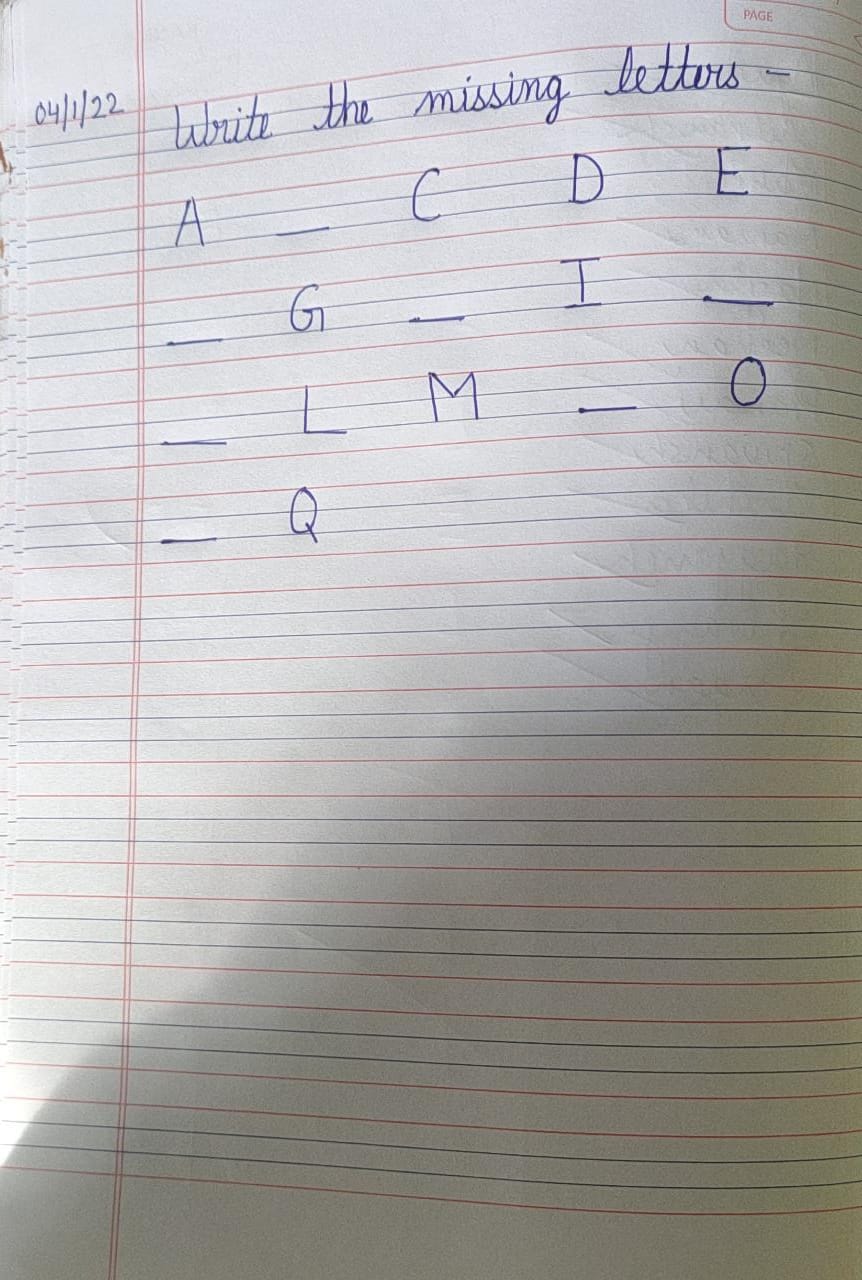 PAGE
04/1/22 Write the missing letters -
A _ C D E
_ G _ I _
_ L M _ O
_ Q